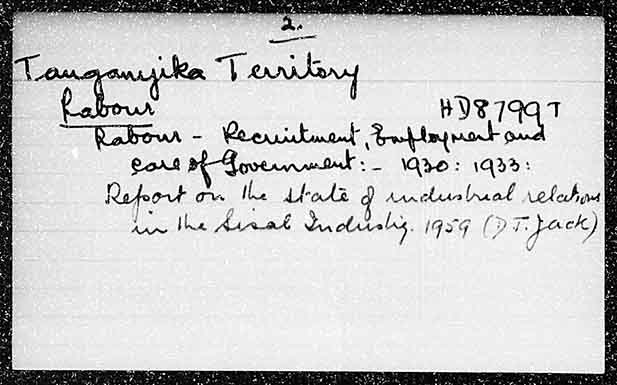 2.
Tanganyika Territory
Labour HD8799T
Labour - Recruitment, Employment and
care of Government:- 1930: 1933:
Report on the state of industrial relations
in the Sisal Industry. 1959 (D.T. Jack)